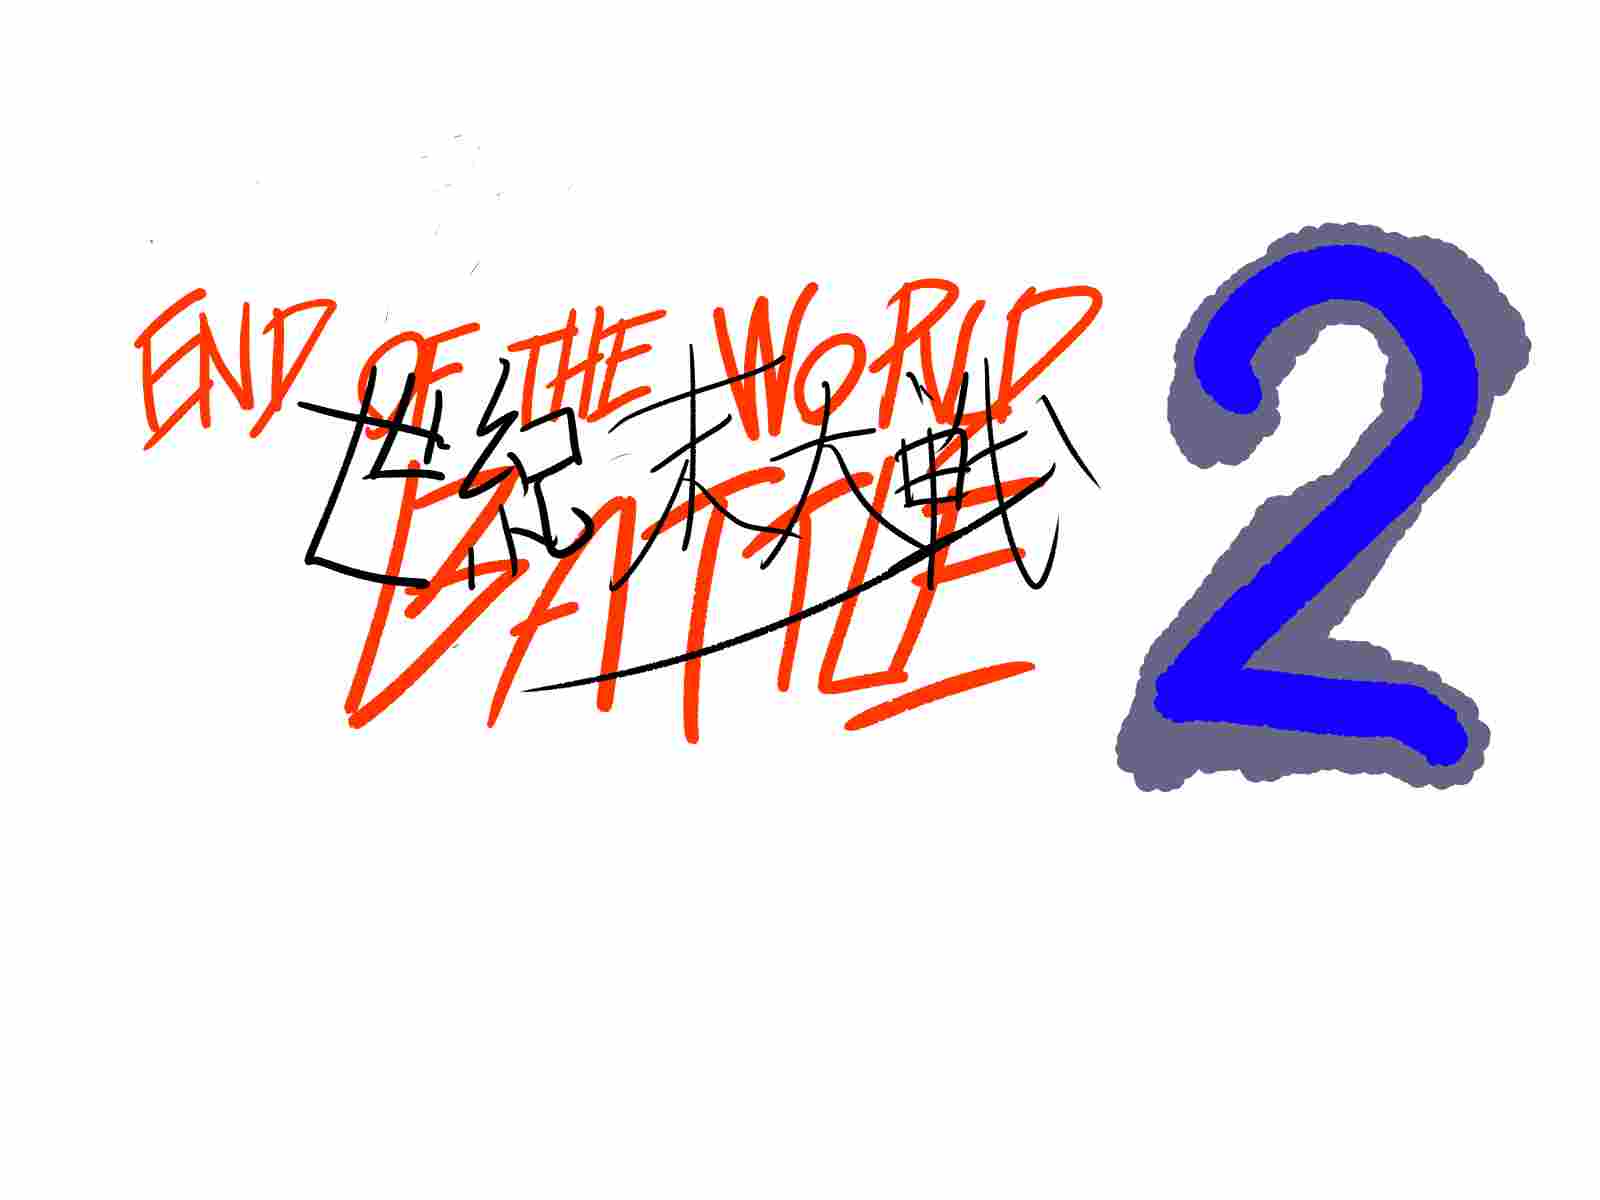 END OF THE WORLD
世紀末大戦
BATTLE
2